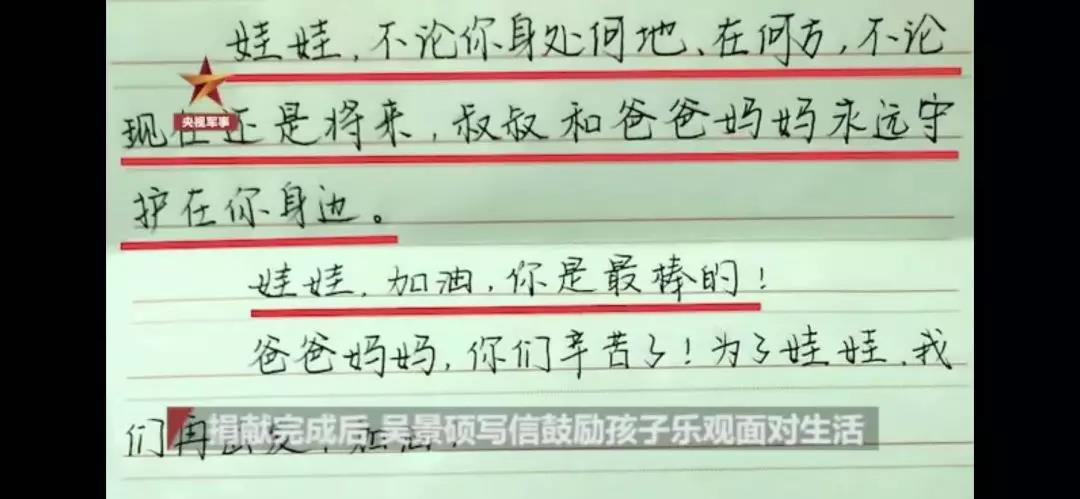 娃娃，不论你身处何地、在何方，不论
央视军事
现在还是将来，叔叔和爸爸妈妈永远守
护在你身边。
娃娃，加油，你是最棒的！
爸爸妈妈，你们辛苦了！为了娃娃，我
们再
捐献完成后 吴景硕写信鼓励孩子乐观面对生活